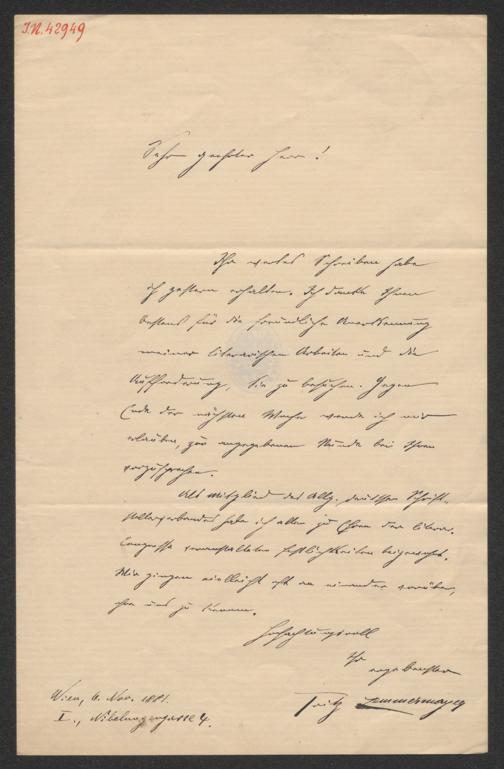 I.N. 42949
Sehr geehrter Herr!
Ihr wertes Schreiben habe
ich gestern erhalten. Ich danke Ihnen
bestens für die freundliche Anerkennung
meiner literarischen Arbeiten und die
Aufforderung, Sie zu besuchen. Gegen
Ende der nächsten Woche werde ich mir
erlauben, zur angegebenen Stunde bei Ihnen
vorzusprechen.
Als Mitglied des Allg. deutschen Schrift-
stellerverbandes habe ich allen zu Ehren der literar.
Congresse veranstalteten Festlichkeiten beigewohnt.
Wir gingen vielleicht oft an einander vorüber,
ohne uns zu kennen.
Hochachtungsvoll
Ihr
ergebenster
Fritz Lemmermayer
Wien, 6. Nov. 1881.
I., Nibelungengasse 4.